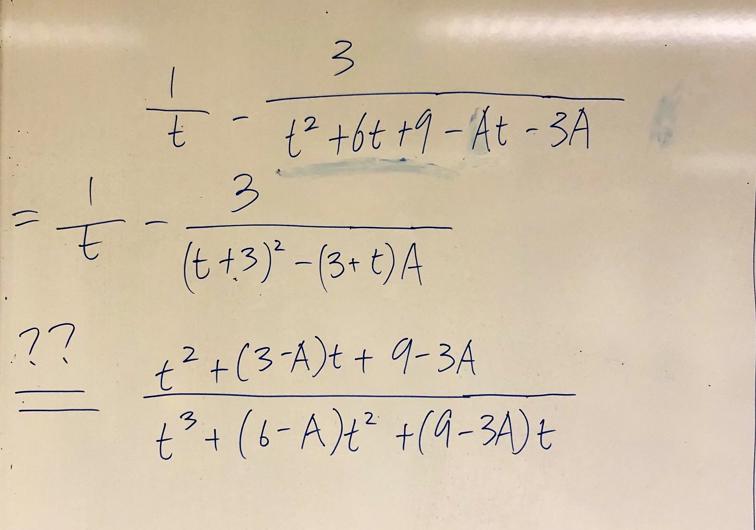 1/t - 3/(t² + 6t + 9 - At - 3A)
= 1/t - 3/((t + 3)² - (3 + t)A)
?? = (t² + (3 - A)t + 9 - 3A)/(t³ + (6 - A)t² + (9 - 3A)t)